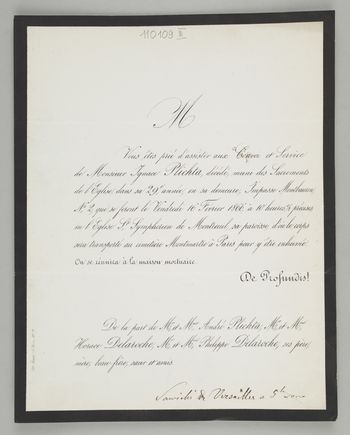 110109 II
M
Vous êtes prié d'assister aux Convoi et Service
de Monsieur Ignace Plichta, décédé, muni des Sacrements
de l'Eglise, dans sa 29e année, en sa demeure, Impasse Montbauron,
No 2, que se feront le Vendredi 16 Février 1866 à 10 heures précises
en l'Eglise St Symphorien de Montreuil, sa paroisse d'où le corps
sera transporté au cimetière Montmartre à Paris pour y être inhumé.
On se réunira à la maison mortuaire.
De Profundis!
De la part de M. et Mme André Plichta, M. et Mme
Horace Delaroche, M. et M. Philippe Delaroche, ses père,
mère, beau-frère, sœur et amis.
de Versailles a 5h